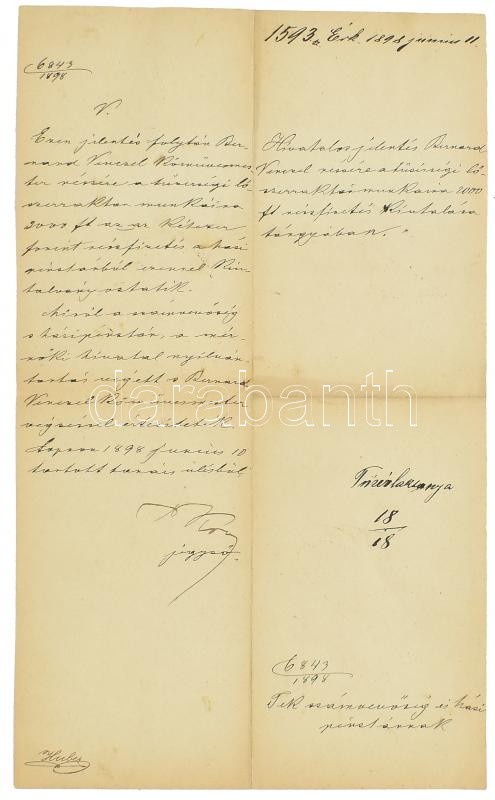 1593. Érk. 1898 junius 11.
6843
1898
V.
Ezen jelentés folytán Ber-
nard Venczel Kőművesmes-
ter részére a tüzérségi lő
szerraktár munkáira
2000 ft az az Kétezer
forint részfizetés a házi
pénztárból ezennel kiu-
talványoztatik.
Miről a számvevőség
s házipénztár, a mér-
nöki hivatal nyilván
tartás végett s Bernard
Venczel Kőművesmester
végzésileg értesíttetik
Sopron 1898 Junius 10
tartott tanács ülésből
jegyző
Huber
Hivatalos jelentés Bernard
Venczel részére a tüzérségi lő-
szerraktár munkáira 2000
ft részfizetés kiutalása
tárgyában.
Tüzérlaktanya
18
18
6843
1898
Tek számvevőség és házi
pénztárnak
darabanth